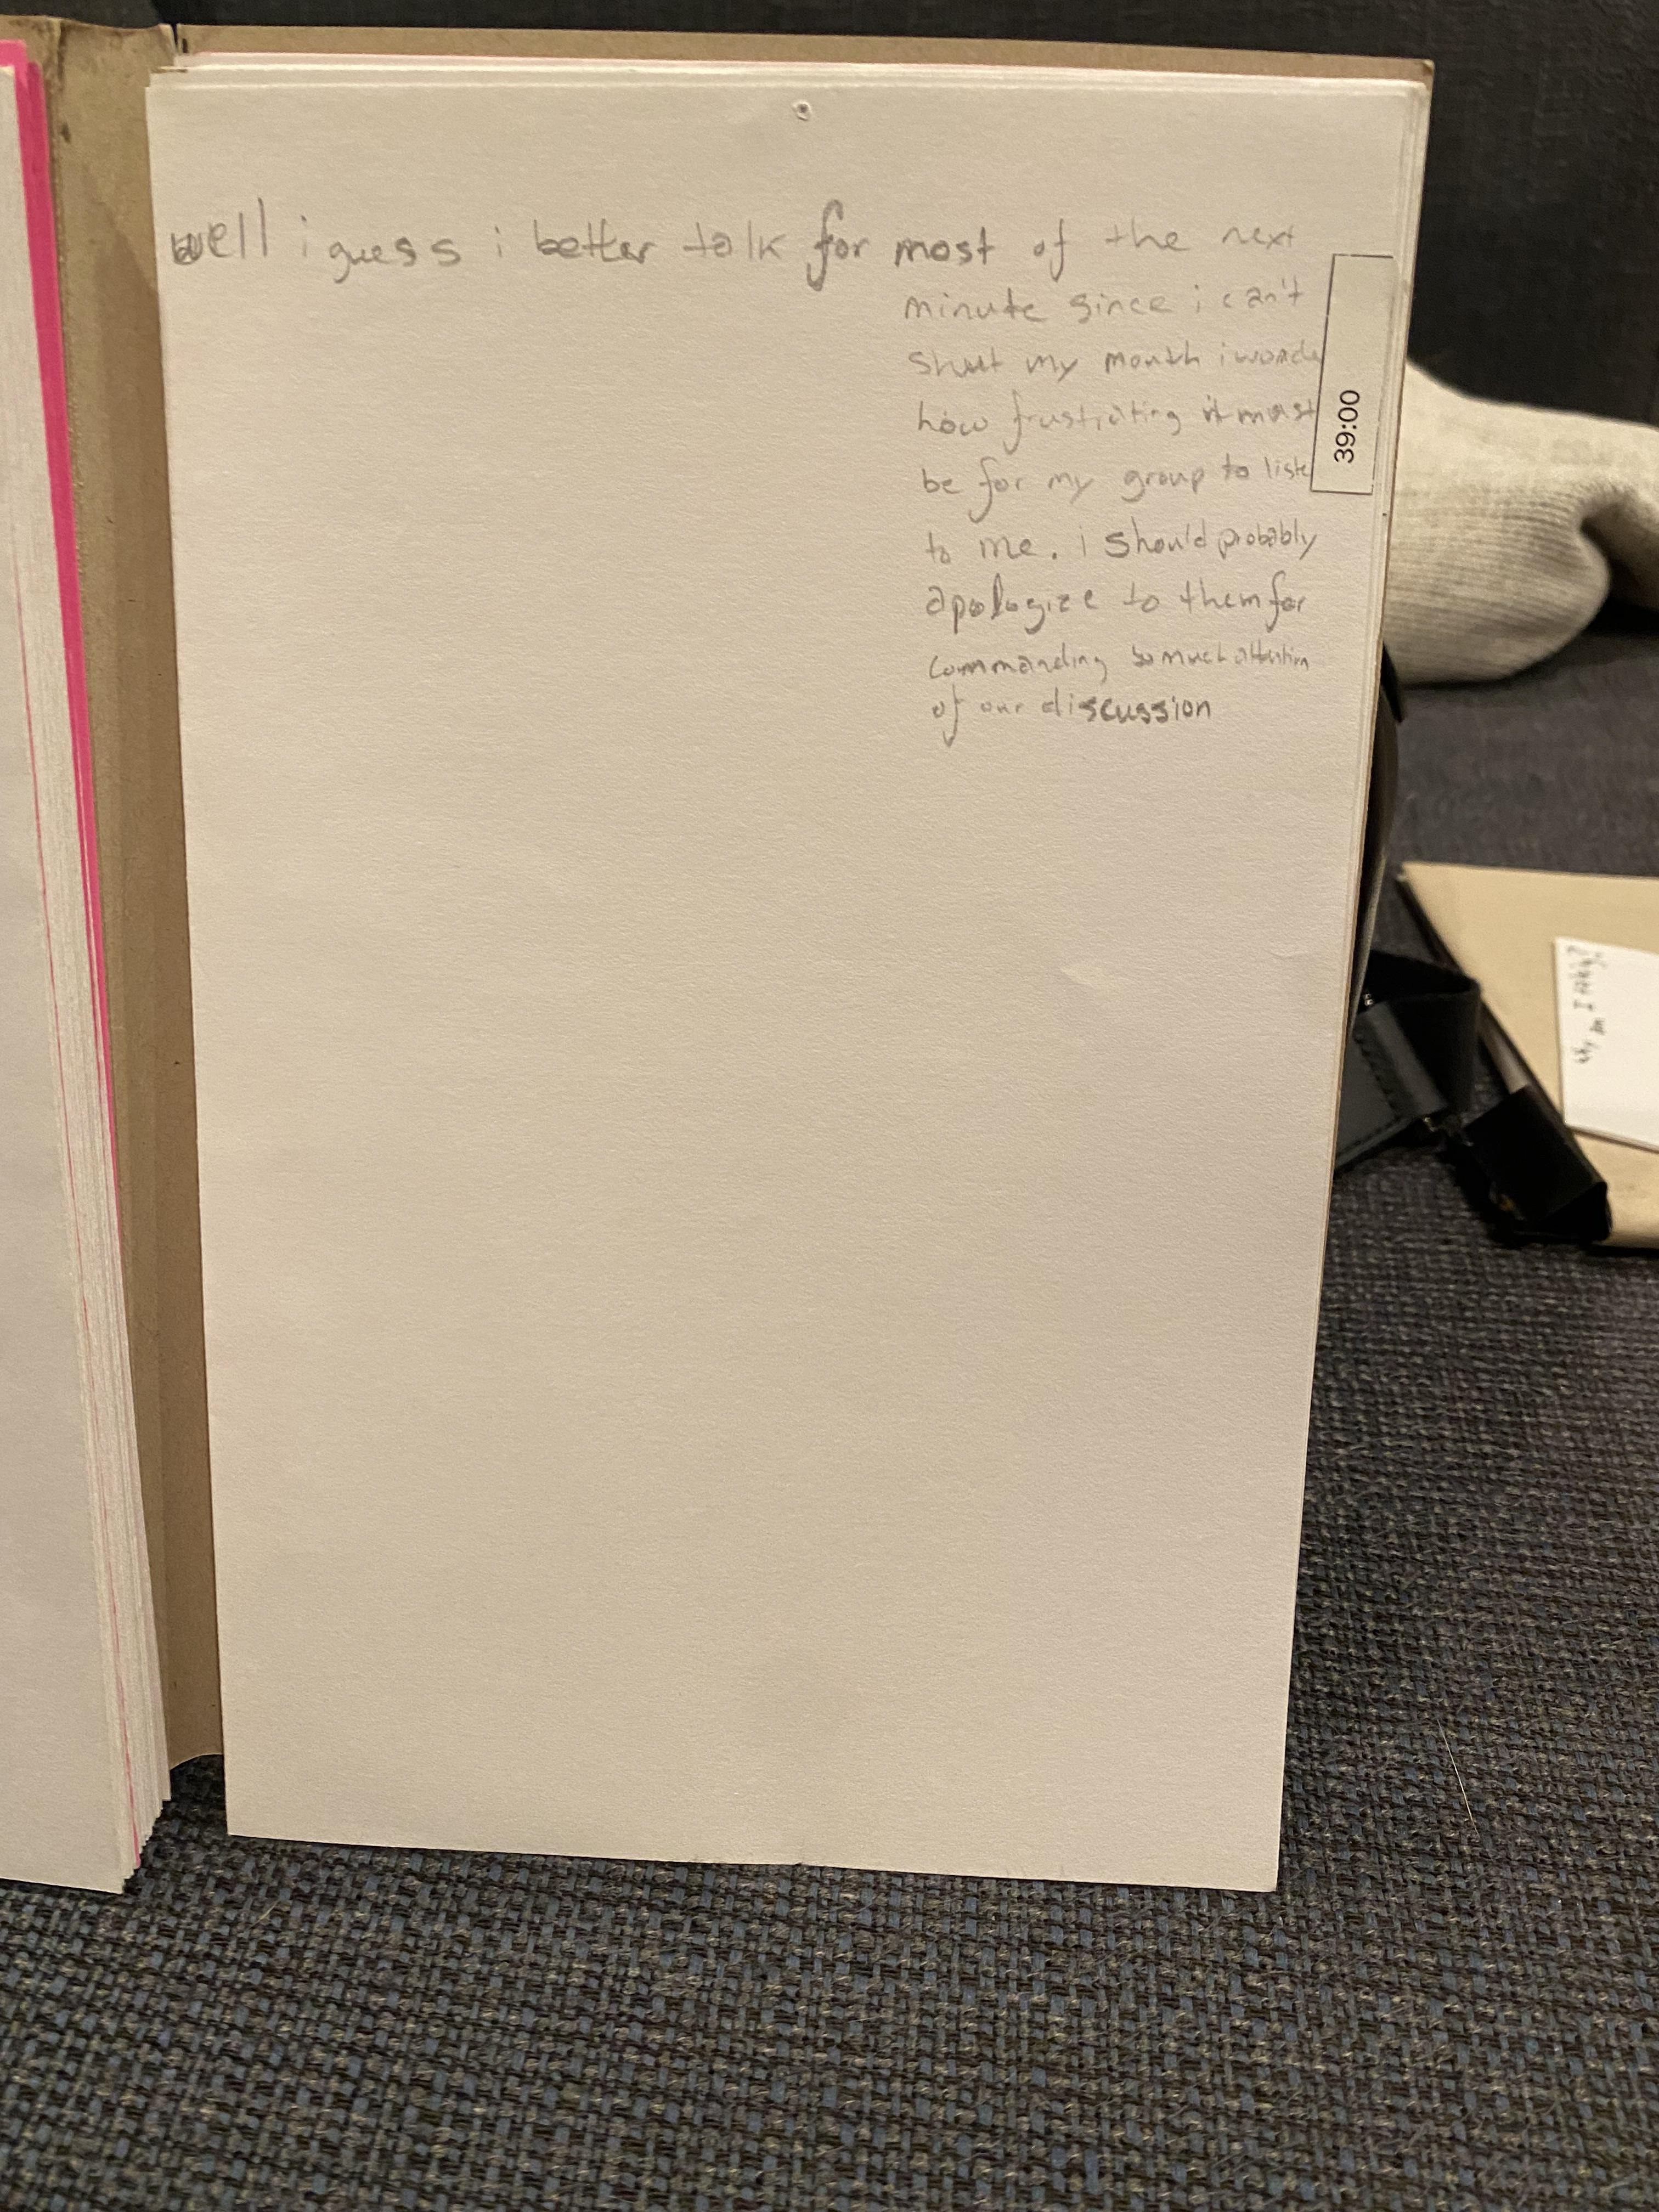 well i guess i better talk for most of the next
minute since i can't
shut my mouth i wonde
how frustrating it must
be for my group to liste
to me. i should probably
apologize to them for
commanding so much attention
of our discussion
39:00
why am I talking?